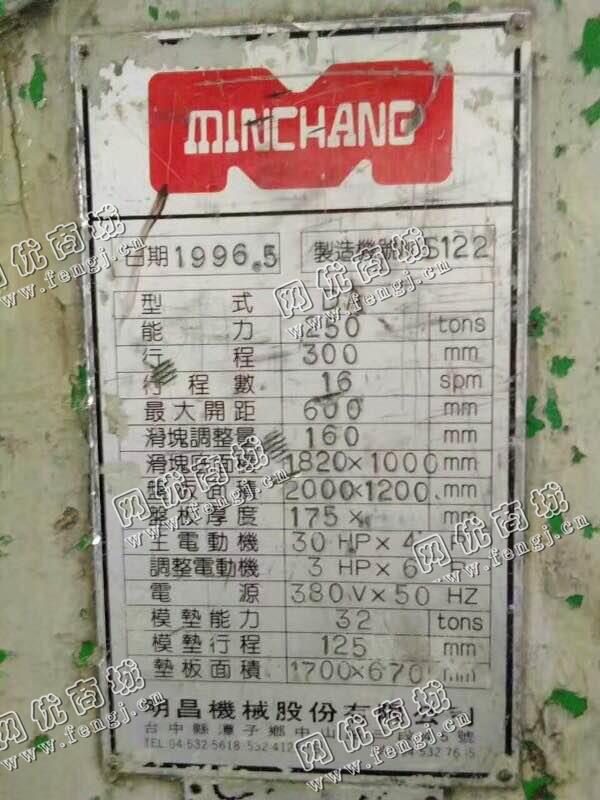 MINCHANG
日期 1996.5 製造機號 5122
型 式
能 力 250 tons
行 程 300 mm
行程數 16 spm
最大開距 600 mm
滑塊調整量 160 mm
滑塊底面積 1820×1000 mm
盤板面積 2000×1200 mm
盤板厚度 175× mm
主電動機 30 HP× 4 P
調整電動機 3 HP× 6 P
電 源 380V×50 HZ
模墊能力 32 tons
模墊行程 125 mm
墊板面積 1700×670 mm
明昌機械股份有限公司
台中縣潭子鄉中山 號
TEL 04-5325618 532412
网优商城
www.fengj.cn
网优商城
www.fengj.cn
网优商城
www.fengj.cn
网优商城
www.fengj.cn
网优商城
www.fengj.cn